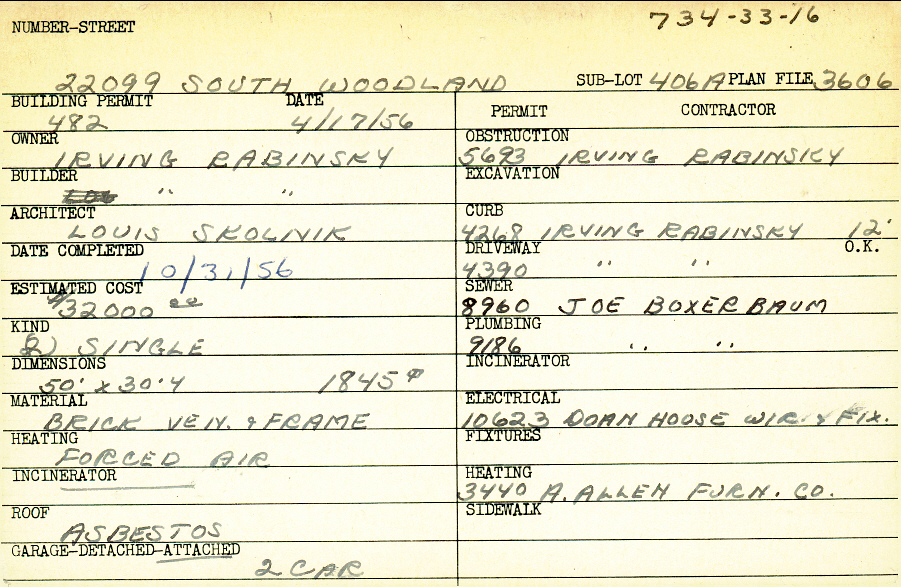 734-33-16
NUMBER-STREET
22099 SOUTH WOODLAND SUB-LOT 406A PLAN FILE 3606
BUILDING PERMIT DATE
482 4/17/56
OWNER
IRVING RABINSKY
BUILDER
" "
ARCHITECT
LOUIS SKOLNIK
DATE COMPLETED
10/31/56
ESTIMATED COST
$32000 00
KIND
(2) SINGLE
DIMENSIONS
50' x 30'4 1845 ¤
MATERIAL
BRICK VEN. & FRAME
HEATING
FORCED AIR
INCINERATOR
ROOF
ASBESTOS
GARAGE-DETACHED-ATTACHED
2 CAR
PERMIT CONTRACTOR
OBSTRUCTION
5693 IRVING RABINSKY
EXCAVATION
CURB
4268 IRVING RABINSKY 12'
DRIVEWAY O.K.
4390 " "
SEWER
8960 JOE BOXERBAUM
PLUMBING
9186 " "
INCINERATOR
ELECTRICAL
10623 DOAN HOUSE WIR. & FIX.
FIXTURES
HEATING
3440 A. ALLEN FURN. CO.
SIDEWALK